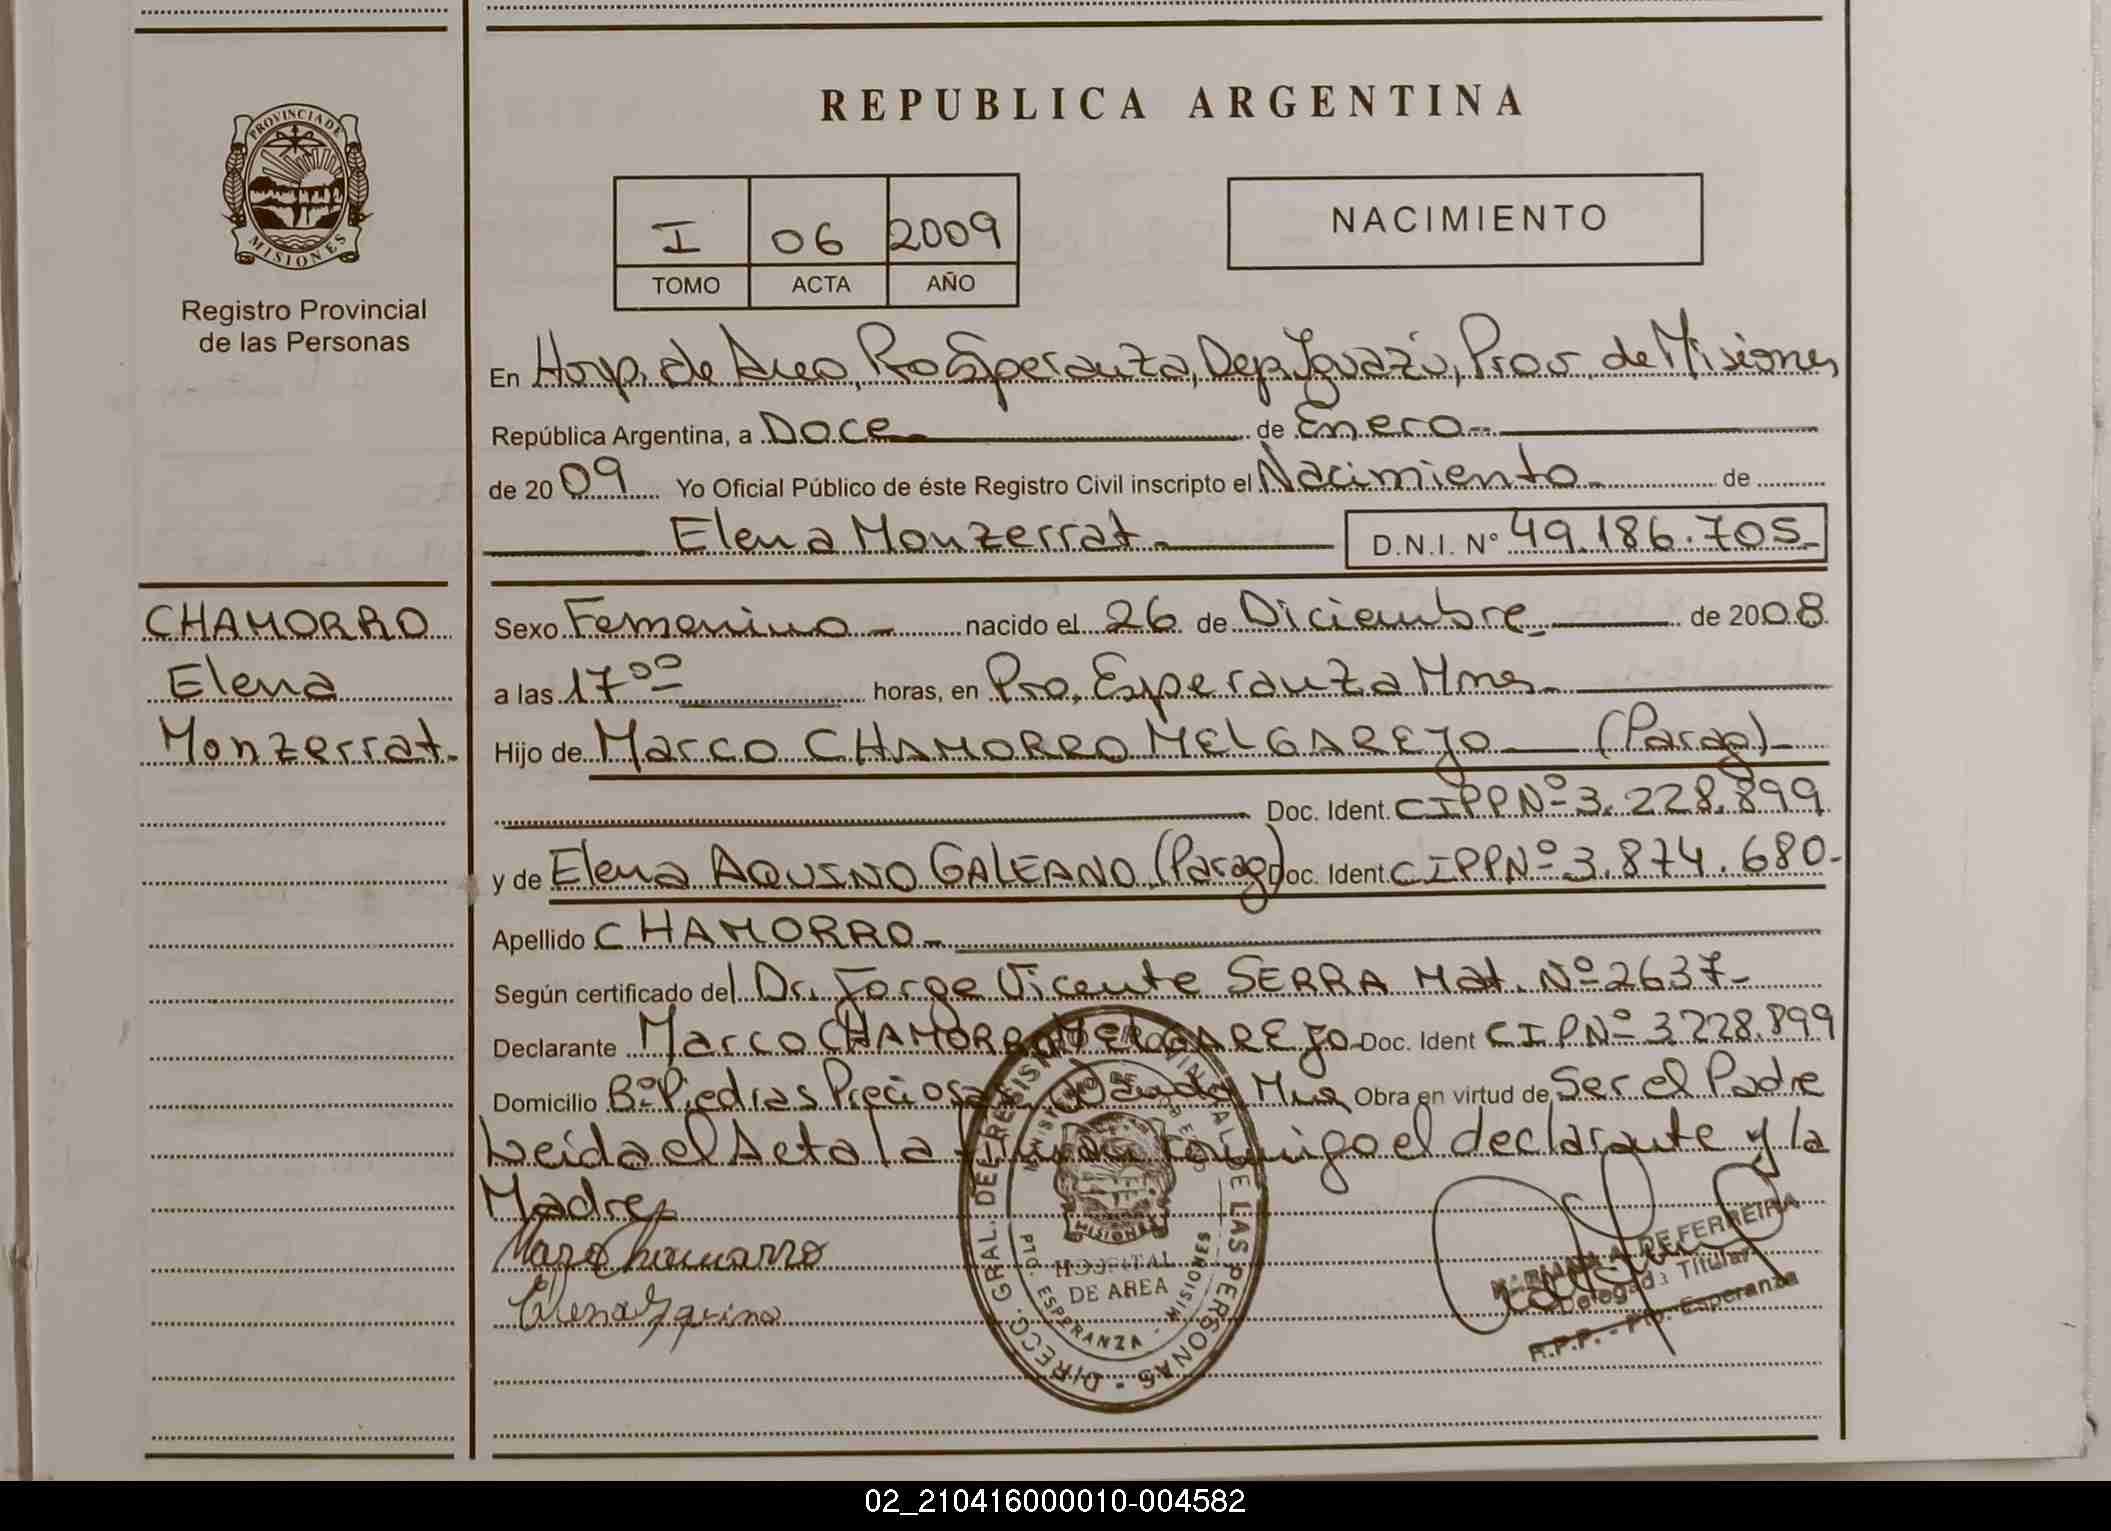 REPUBLICA ARGENTINA
PROVINCIA DE
MISIONES
Registro Provincial
de las Personas
I 06 2009
TOMO ACTA AÑO
NACIMIENTO
En Hosp. de Area, Pto Esperanza, Dep. Iguazú, Prov. de Misiones
República Argentina, a Doce de Enero
de 2009 Yo Oficial Público de éste Registro Civil inscripto el Nacimiento de
Elena Monzerrat D.N.I. N° 49.186.705
CHAMORRO
Elena
Monzerrat
Sexo Femenino nacido el 26 de Diciembre de 2008
a las 17 00 horas, en Pto. Esperanza Mnes
Hijo de Marco CHAMORRO MELGAREJO (Parag)
Doc. Ident. CIPPNº 3.228.899
y de Elena AQUINO GALEANO (Parag) Doc. Ident CIPPNº 3.874.680
Apellido CHAMORRO
Según certificado del Dr. Jorge Vicente SERRA Mat. Nº 2637
Declarante Marco CHAMORRO MELGAREJO Doc. Ident CIPNº 3.228.899
Domicilio Bº Piedras Preciosas, Wanda, Mnes Obra en virtud de Ser el Padre
Leida el Acta la firman conmigo el declarante y la
Madre
Marco Chamorro
Elena Aquino
DIRECC. GRAL. DEL REGISTRO PROVINCIAL DE LAS PERSONAS
MINISTERIO DE GOBIERNO
MISIONES
HOSPITAL
DE AREA
PTO. ESPERANZA - MISIONES
A. DE FERREIRA
Delegada Titular
R.P.P. - Pto. Esperanza
02_210416000010-004582